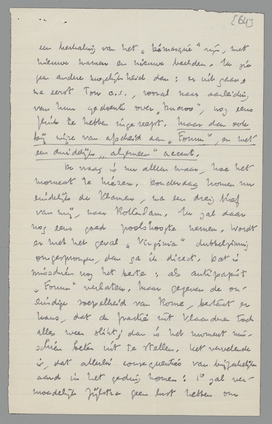 [64]
een herhaling van het "démasqué" zijn, met
nieuwe namen en nieuwe beelden. Ik zie
geen andere mogelijkheid dan: er uit gaan,
na eerst Ton c.s., vooral naar aanleiding
van hun gedoente over "Mdivo", nog eens
flink te hebben ingepeept, maar dan ook
bij wijze van afscheid aan "Forum", en met
een duidelijk "algemeen" accent.
De vraag is nu alleen maar, hoe het
moment te kiezen. Donderdag komen nu
eindelijk de Vlamen, na een drie brief
van mij, naar Rotterdam. Ik zal daar
nog eens goed poolshoogte nemen. Wordt
er met het geval "Virginia" dubbelzinnig
omgesprongen, dan ga ik direct. Dat is
misschien nog het beste: als antipapist
"Forum" verlaten. Maar gegeven de on-
eindige soepelheid van Rome, bestaat er
kans, dat de fractie uit Vlaanderen toch
alles weer slikt; dan is het moment mis-
schien beter uit te stellen. Het vervelende
is, dat allerlei consequenties van bijkomstigen
aard in het geding komen: 1° zal ver-
moedelijk Zijlstra geen lust hebben om